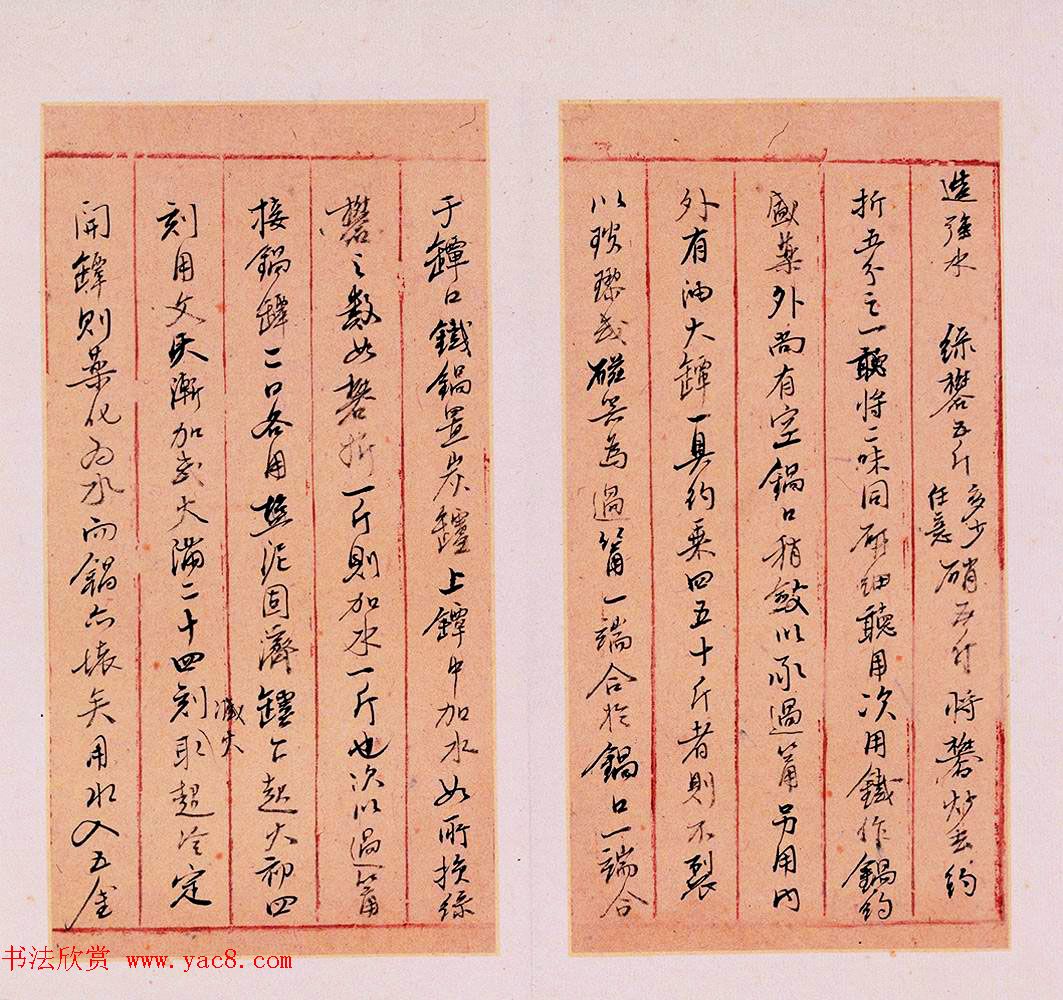 造强水 綠礬五斤 多少任意 硝五斤 將礬炒去 約
折五分之一聽將二味同研細聽用次用鐵作鍋約
盛藥外尚有空鍋口稍斂以承過筩另用內
外有油大罈一具約乗四五十斤者則不裂
以琉璃或磁器為過筩一端合於鍋口一端合
于罈口鐵鍋置炭罏上罈中加水如所損綠
礬之數如礬折一斤則加水一斤也次以過筩
接鍋罈二口各用塩泥固濟罏下起火初四
刻用文火漸加武火滿二十四刻減火取起冷定
開罈則藥化為水而鍋亦壊矣用水入五金
书法欣赏 www.yac8.com